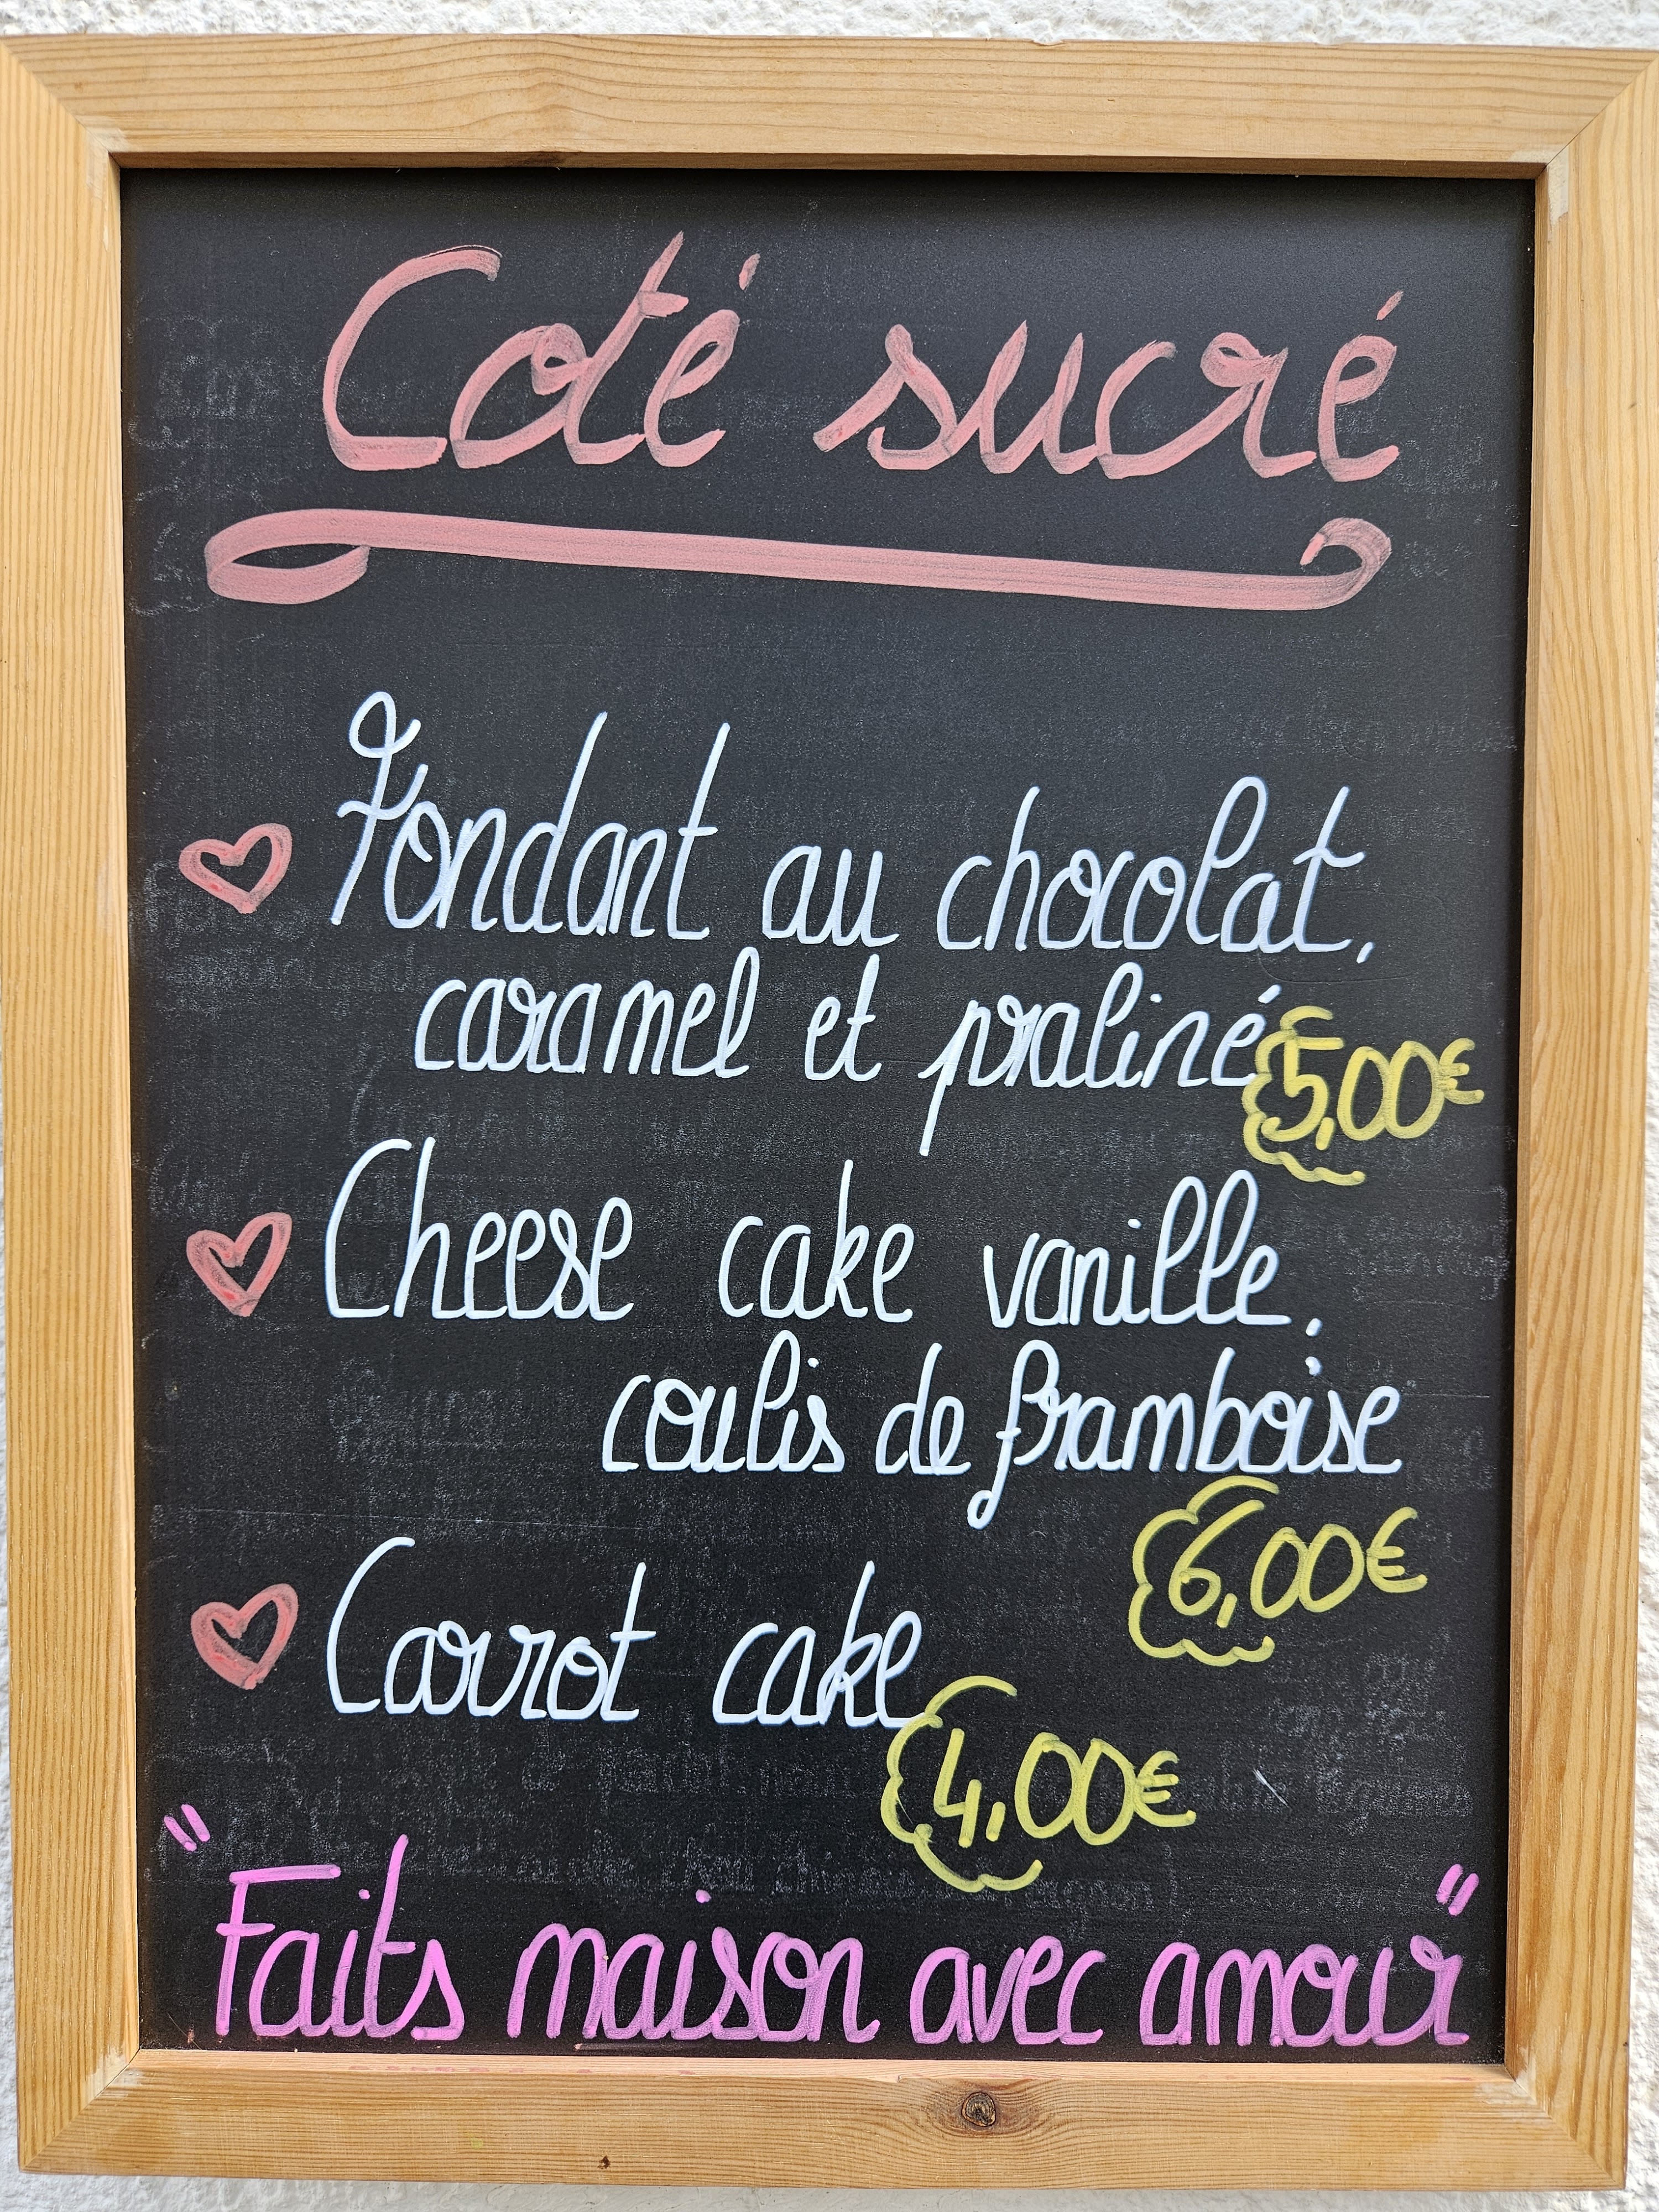 Coté sucré
Fondant au chocolat,
caramel et praliné
5,00€
Cheese cake vanille,
coulis de framboise
6,00€
Carrot cake
4,00€
"Faits maison avec amour"